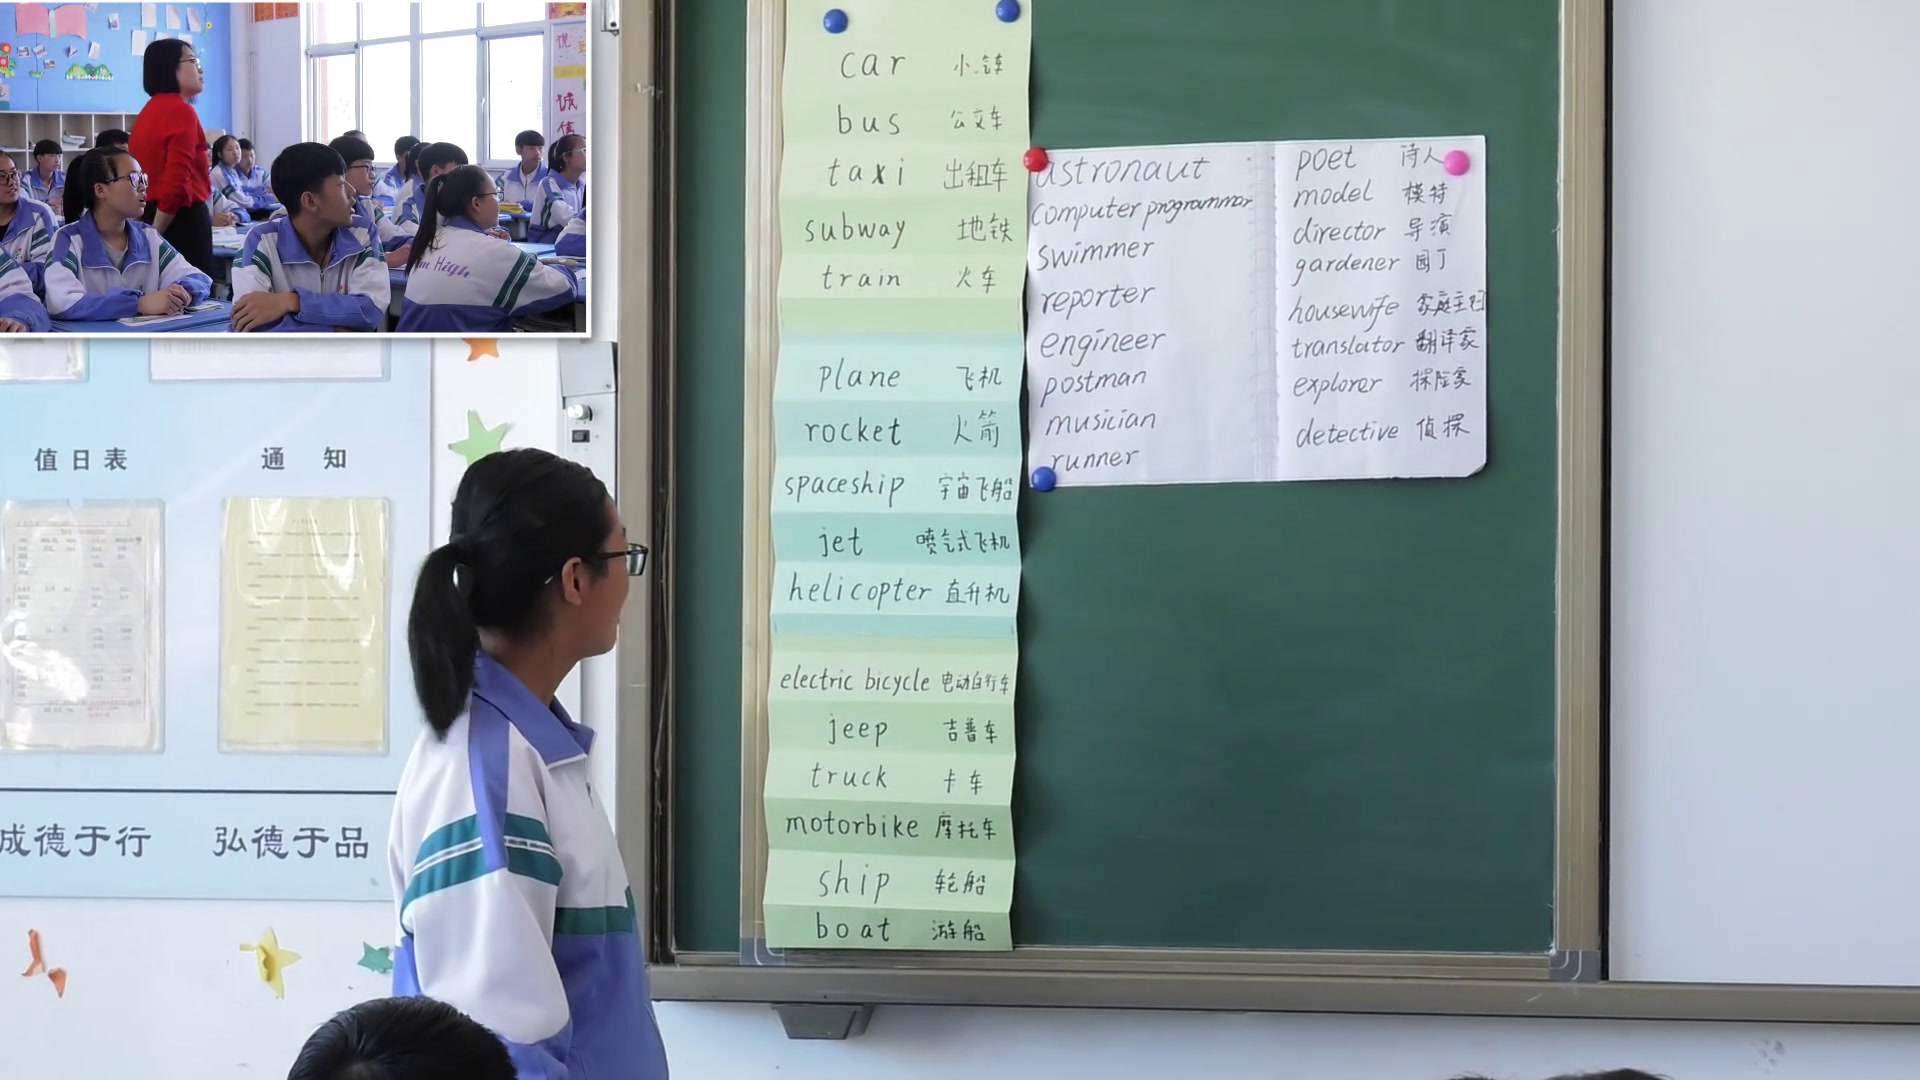 car 小汽车
bus 公交车
taxi 出租车
subway 地铁
train 火车
plane 飞机
rocket 火箭
spaceship 宇宙飞船
jet 喷气式飞机
helicopter 直升机
electric bicycle 电动自行车
jeep 吉普车
truck 卡车
motorbike 摩托车
ship 轮船
boat 游船
astronaut
computer programmar
swimmer
reporter
engineer
postman
musician
runner
poet 诗人
model 模特
director 导演
gardener 园丁
housewife 家庭主妇
translator 翻译家
explorer 探险家
detective 侦探
值日表
通 知
成德于行
弘德于品
诚
信
High